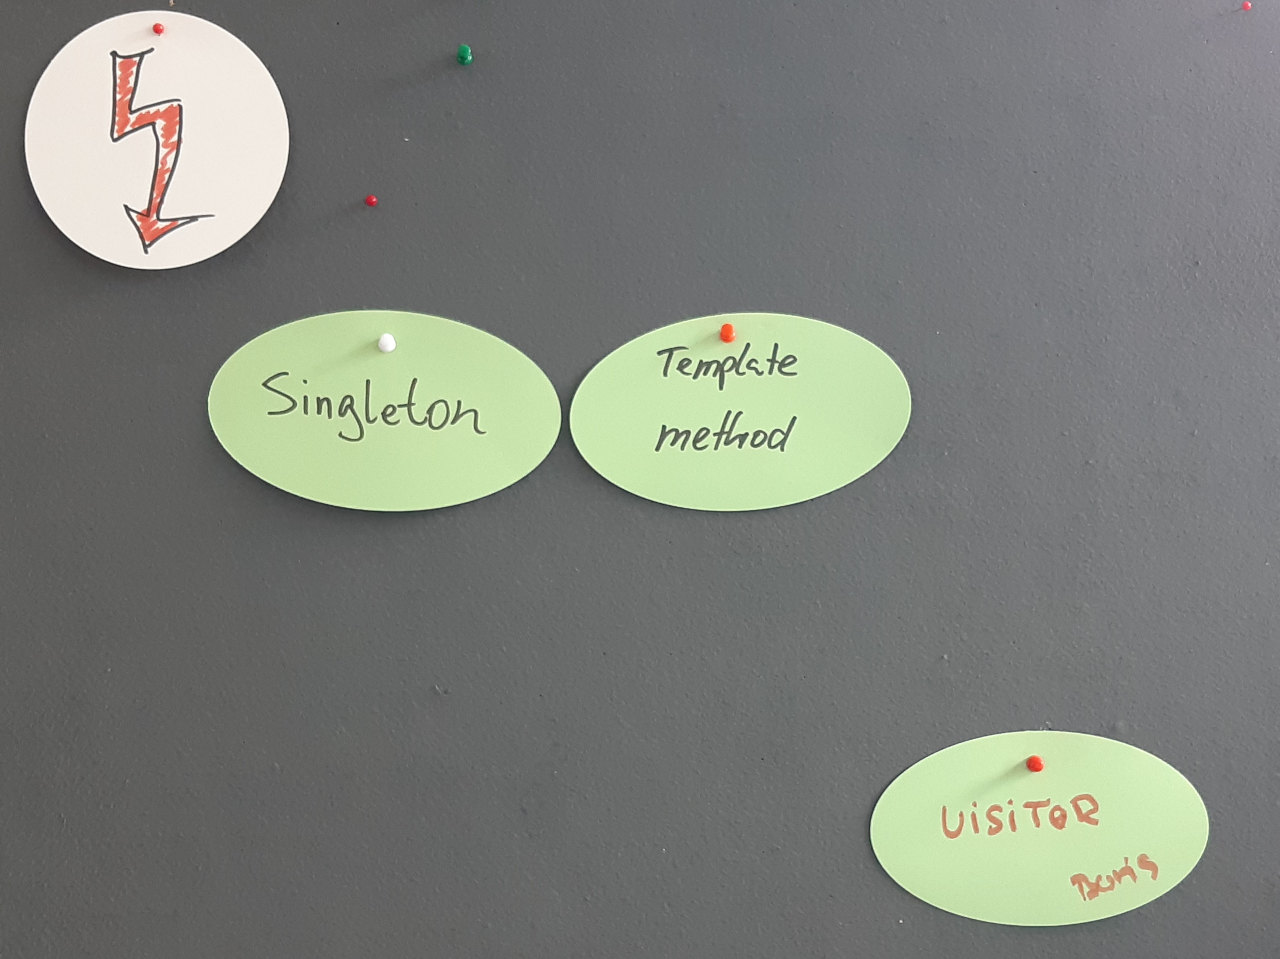 Singleton
Template
method
VISITOR
Boris